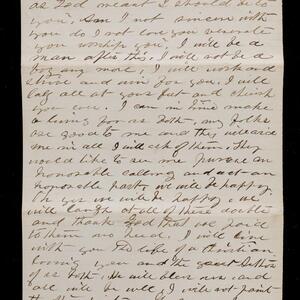 as God meant I should be to
you, Am I not sincere with
you do I not love you venerate
you worship you, I will be a
man after this, I will not be a
boy any more, I will work and
and for you, I will
lay all at your feet and cherish
you ever. I can in time make
a living for us both, my folks
are good to me and this
me in all I will ask of them. They
would like to see me pursue an
honorable calling and act an
honorable part, we will be happy,
Oh yes we will be happy, we
will laugh at all of these doubts
and thank God that we paid
to them no heed. I will live
with you I'd like of a Christian
loving you and the great
of us both, He will bless us and
all will be well, I will not